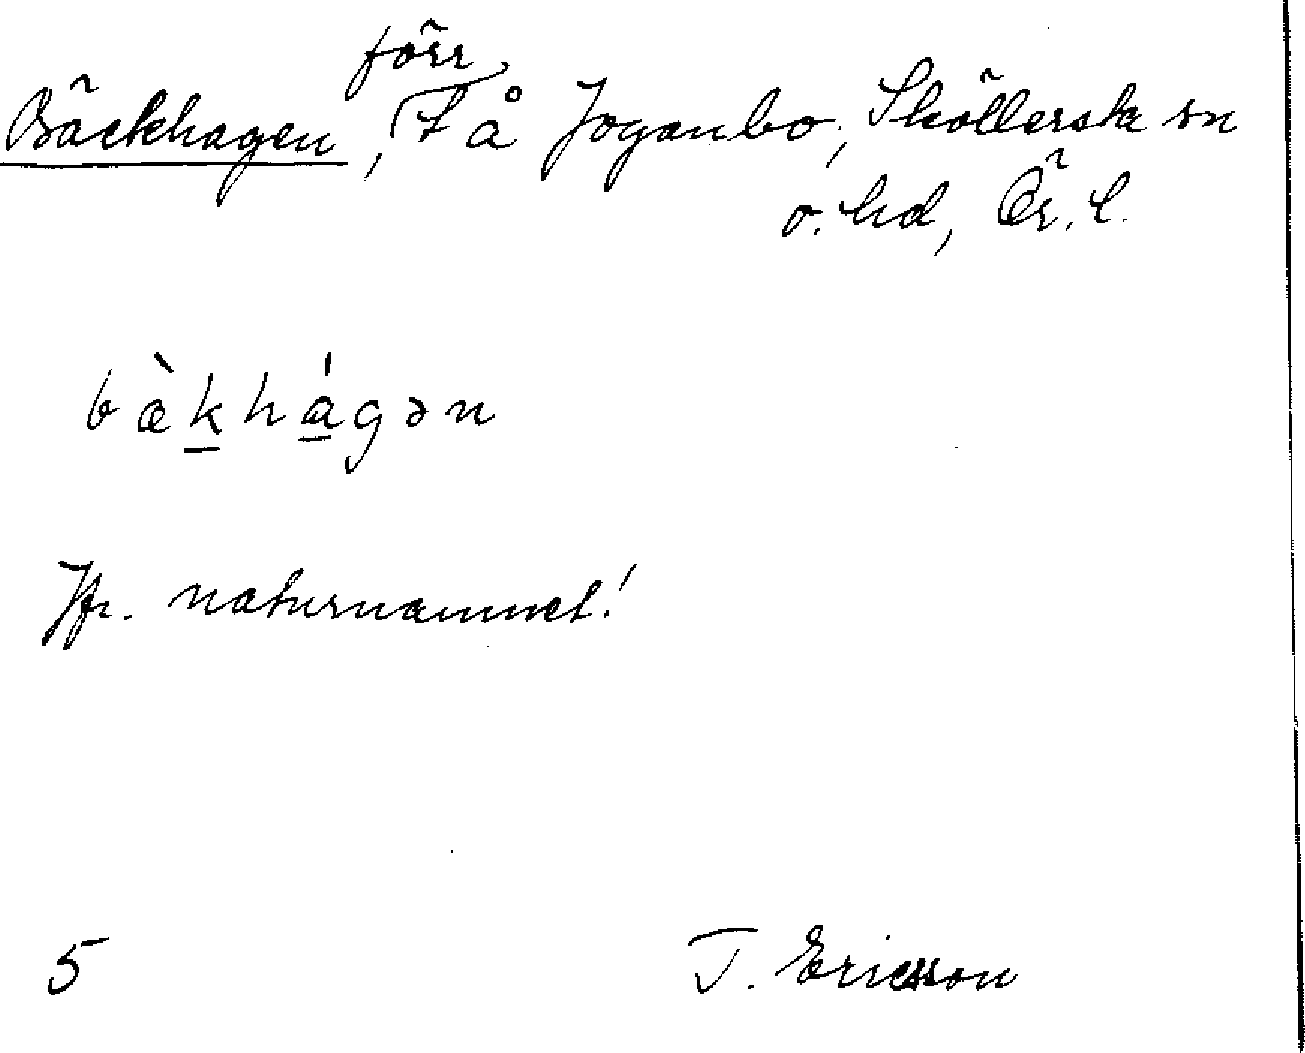 förr
Bäckhagen, t å Joganbo, Sköllersta sn
o. hd, Ör. l.
bæ̀khágən
Jfr. naturnamnet!
5 T. Ericsson